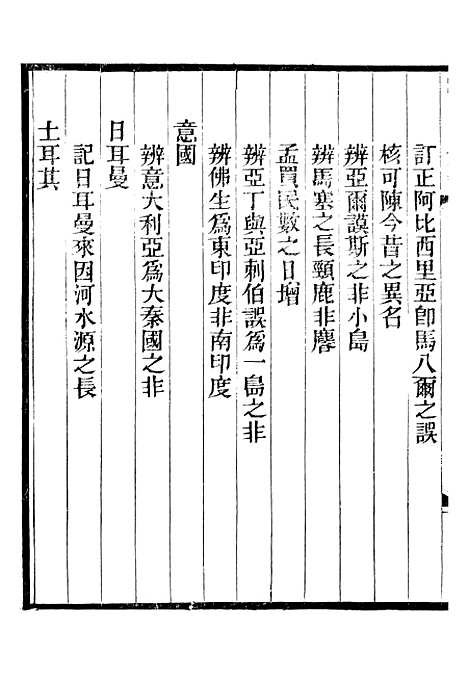 訂正阿比西里亞卽馬八爾之誤
核可陳今昔之異名
辨亞爾謨斯之非小島
辨馬塞之長頸鹿非麐
孟買民數之日增
辨亞丁與亞剌伯誤爲一島之非
辨佛生爲東印度非南印度
意國
辨意大利亞爲大秦國之非
日耳曼
記日耳曼來因河水源之長
土耳其